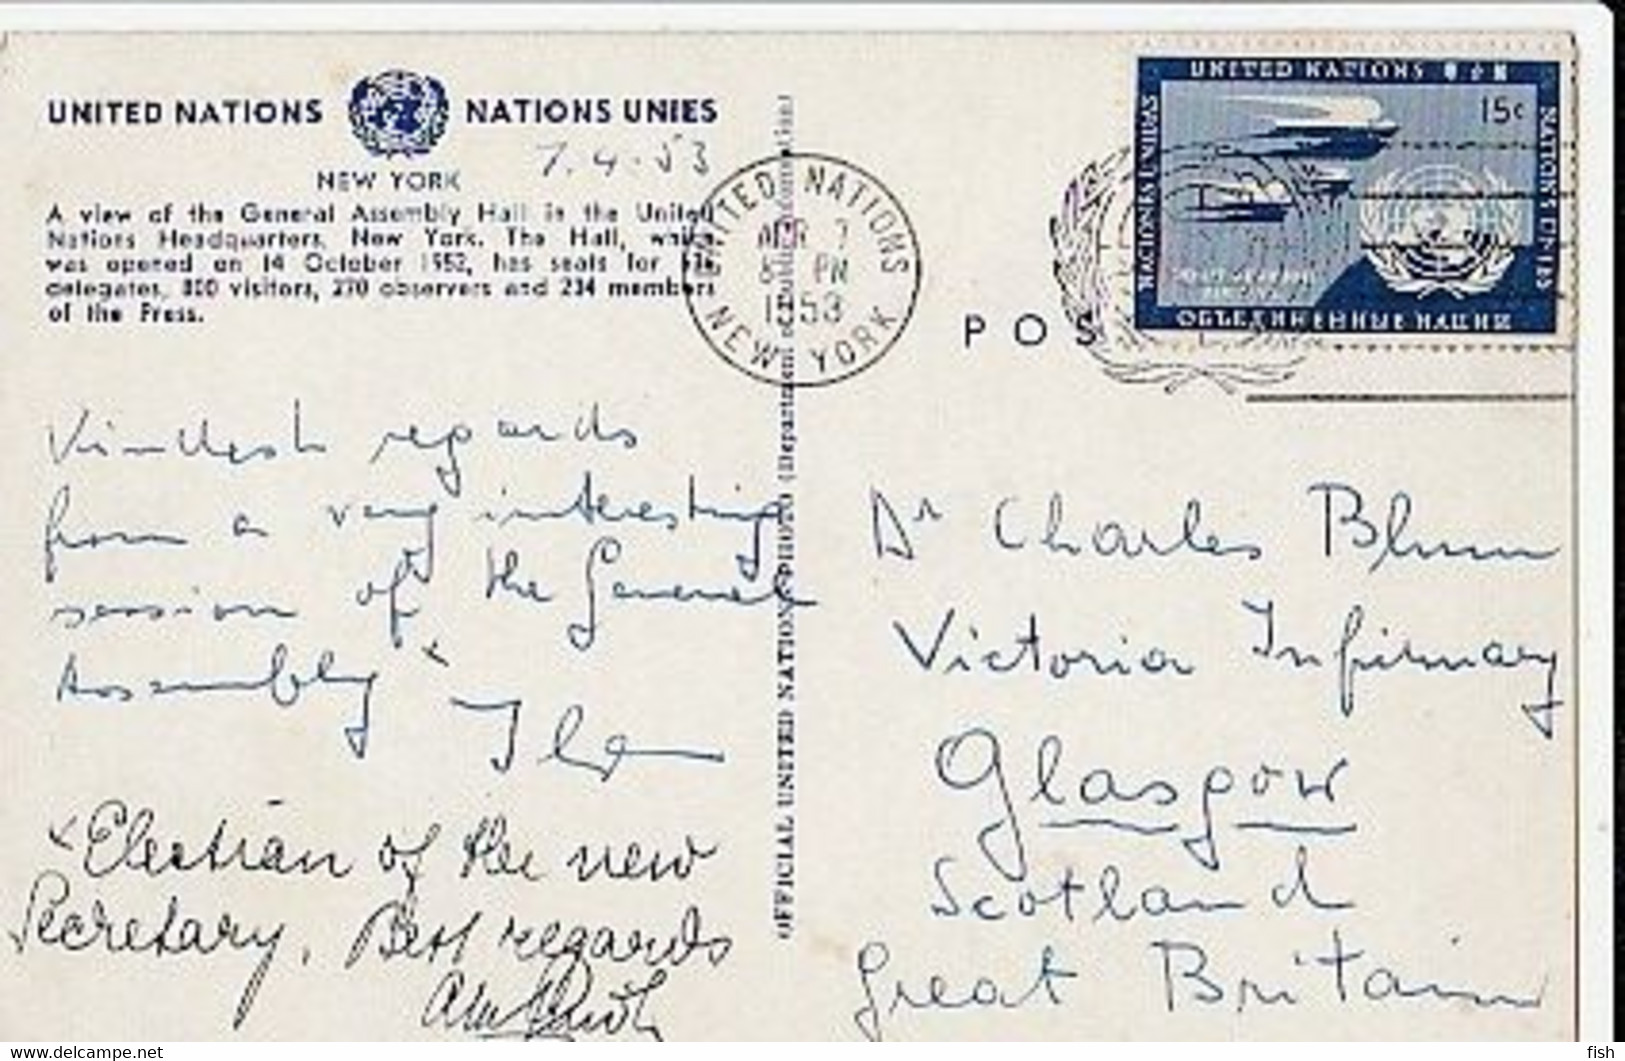 UNITED NATIONS NATIONS UNIES
7.4.53
NEW YORK
A view of the General Assembly Hall in the United
Nations Headquarters, New York. The Hall, which
was opened on 14 October 1952, has seats for
delegates, 800 visitors, 270 observers and 234 members
of the Press.
UNITED NATIONS
APR 7
PM
1953
NEW YORK
UNITED NATIONS
15c
NACIONES UNIDAS
NATIONS UNIES
ОБЪЕДИНЕННЫЕ НАЦИИ
POS
Kindest regards
from a very interesting
session of the General
Assembly x
x Election of the new
Secretary. Best regards
OFFICIAL UNITED NATIONS PHOTO (Department of Public Information)
Dr Charles Blum
Victoria Infirmary
Glasgow
Scotland
Great Britain
www.delcampe.net
fish